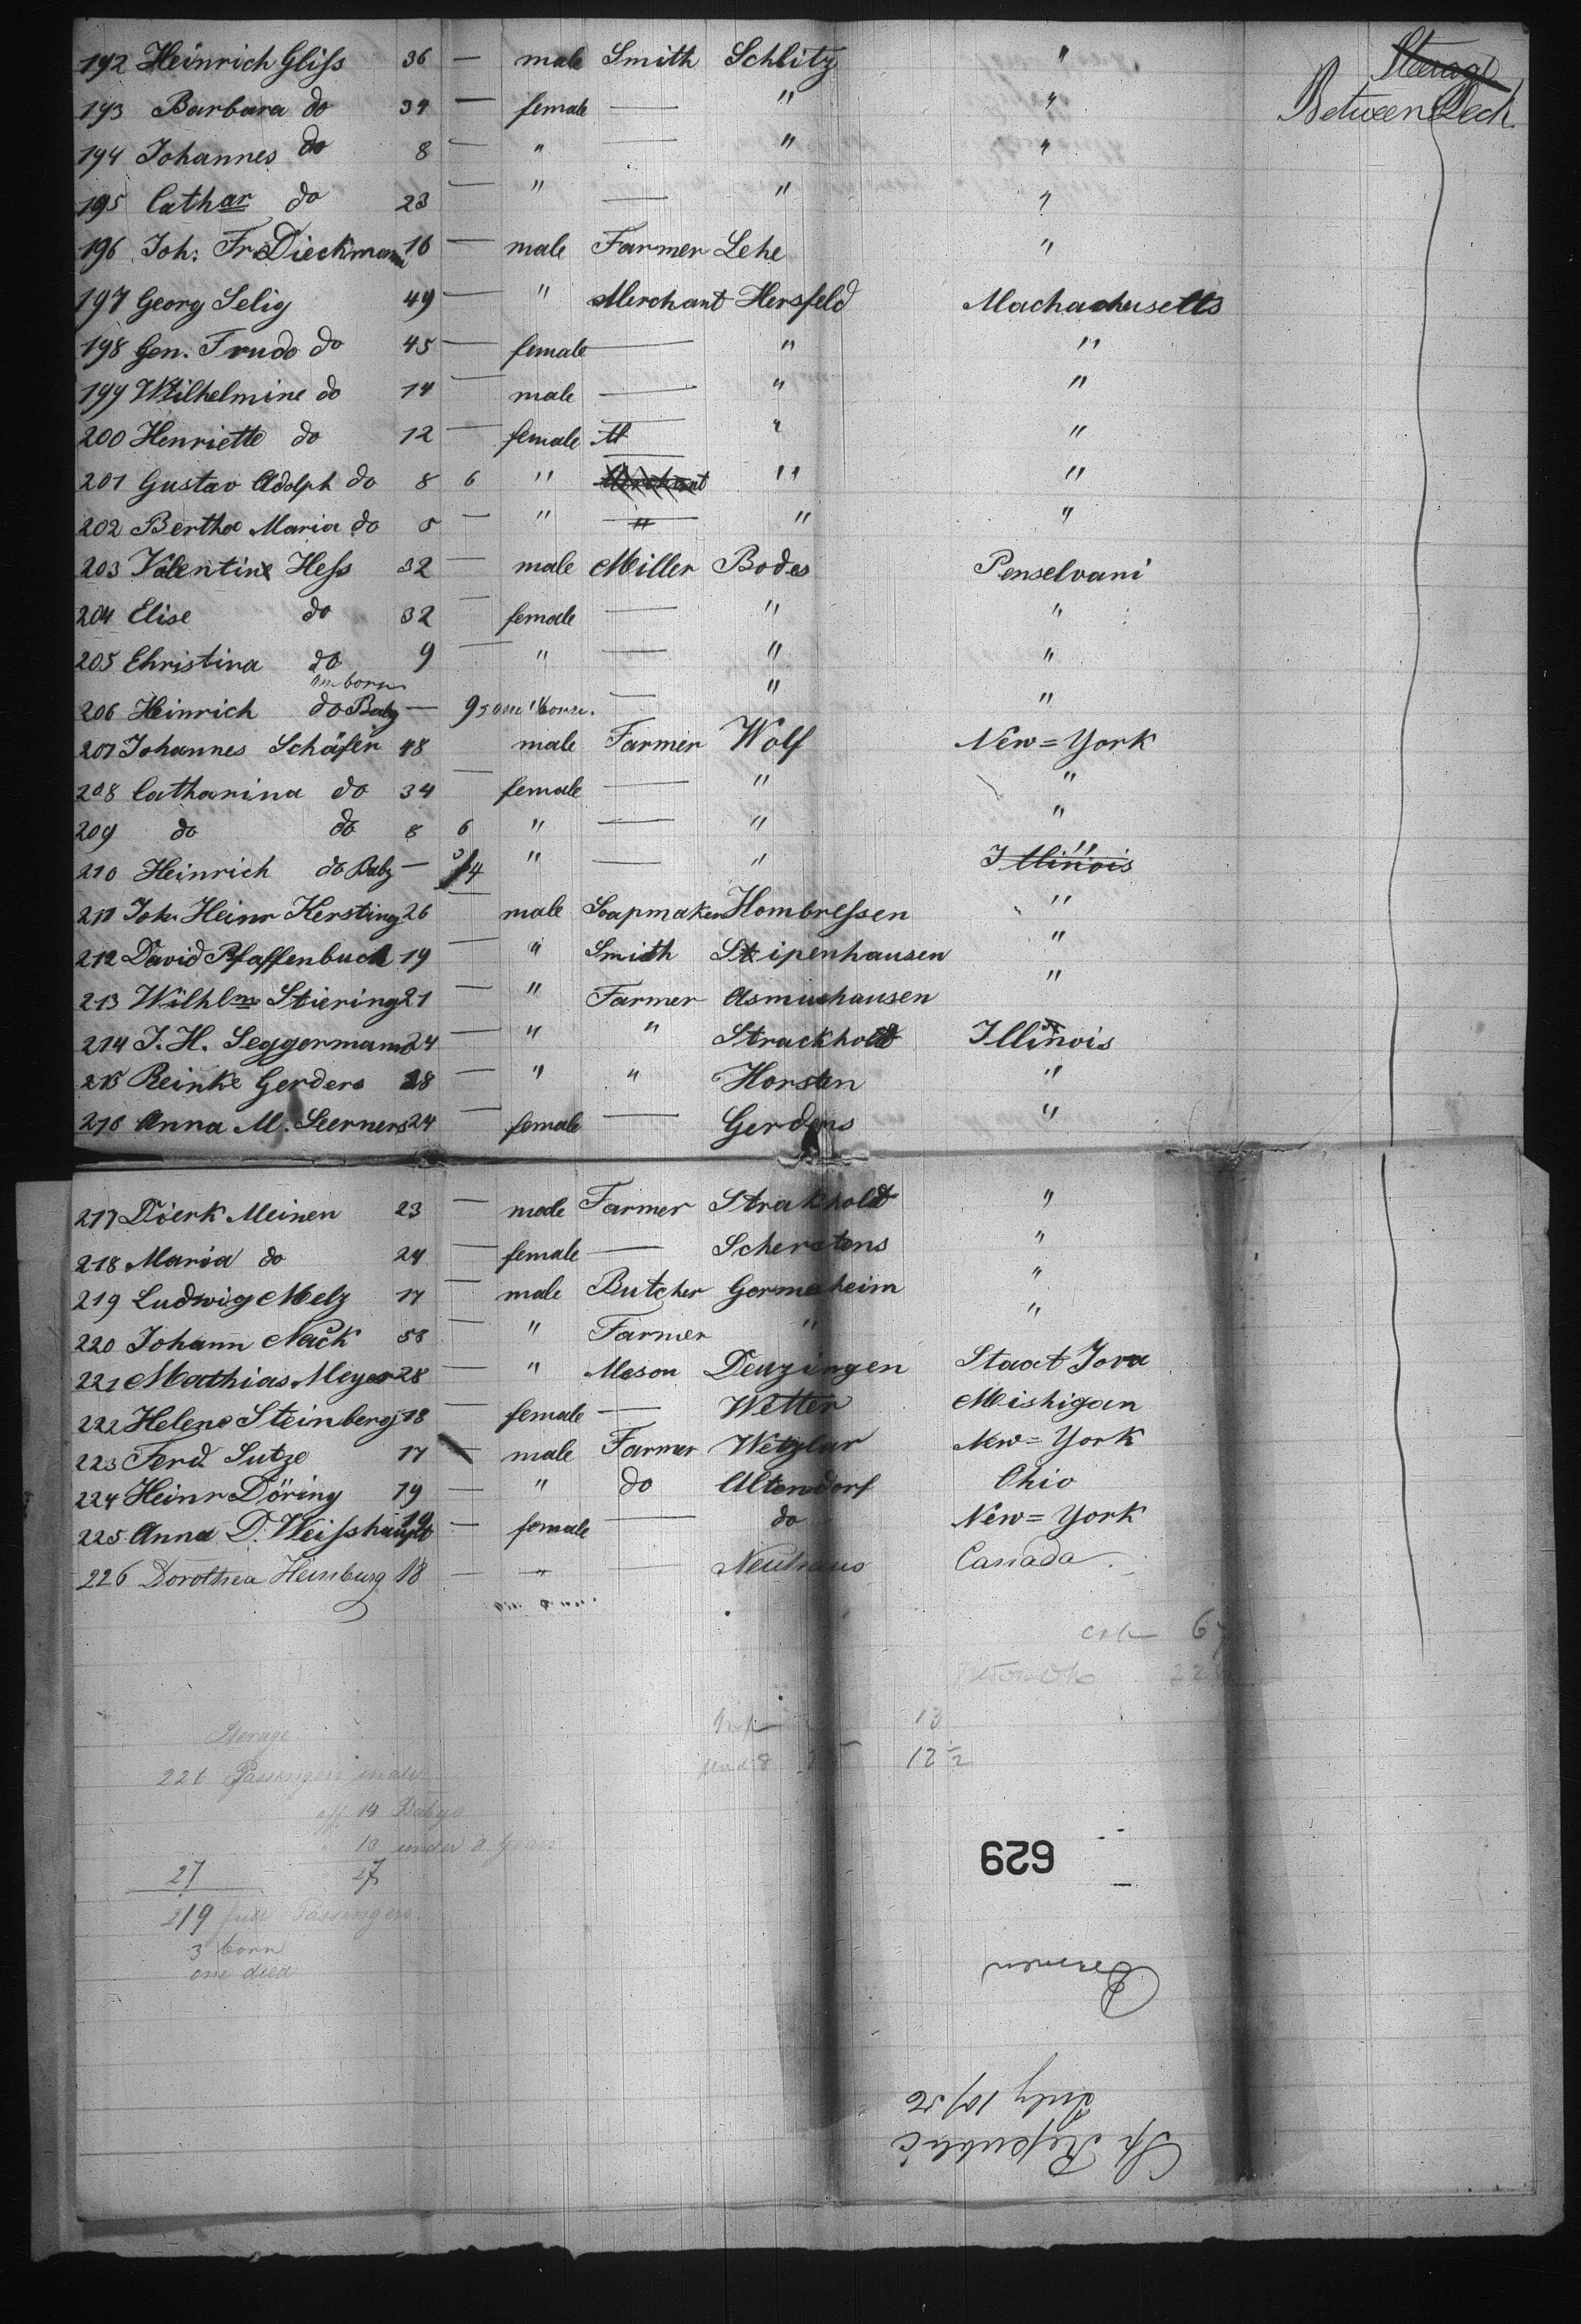 192 Heinrich Gliss 36 — male Smith Schlitz "
Steerage
193 Barbara do 34 — female — " "
Between Deck
194 Johannes do 8 — " — " "
195 Cathar do 23 — " — " "
196 Joh. Fr. Dieckmann 16 — male Farmer Lehe "
197 Georg Selig 49 — " Merchant Hersfeld Machachusetts
198 Gen. Trudo do 45 — female — " "
199 Wilhelmine do 14 — male — " "
200 Henriette do 12 — female M — " "
201 Gustav Adolph do 8 6 " Merchant " "
202 Bertha Maria do 5 — " " " "
203 Valentine Hess 32 — male Miller Bodes Penselvani
204 Elise do 32 — female — " "
205 Christina do 9 — " — " "
206 Heinrich do Baby — 9 — " "
207 Johannes Schäfer 48 male Farmer Wolf New=York
208 Catharina do 34 — female — " "
209 do do 8 6 " — " "
210 Heinrich do Baby — 3/4 " — " Illinois "
211 Joh. Heinr Kersting 26 — male Soapmaker Hombressen "
212 David Pfaffenbach 19 — " Smith Stipenhausen "
213 Wilhlm Stiering 21 — " Farmer Asmushausen "
214 J. H. Seggermann 24 — " " Strackholt Illinois
215 Reinke Gerders 28 — " " Horsten "
216 Anna M. Leerners 24 — female — Gerdens "
217 Dierk Meinen 23 — male Farmer Strakholt "
218 Maria do 24 — female — "
219 Ludwig Melz 17 — male Butcher Germeheim "
220 Johann Nack 58 — " Farmer " "
221 Mathias Meyer 28 — " Meson Denzingen Staat Jova
222 Helene Steinberg 18 — female — Wetter Mishigan
223 Ferd. Lutze 17 — male Farmer Wetzlar New=York
224 Heinr Döring 19 — " do Altendorf Ohio
225 Anna D. Weisshaupt 19 — female — do New=York
226 Dorothea Heinburg 18 — " — Neuhaus Canada
13
12 1/2
226 Passengers
off 14 Babys
13 under 8 years
27 27
219 full Passengers.
3 born
one died
629
Bremen
July 10/56
Sp Republic